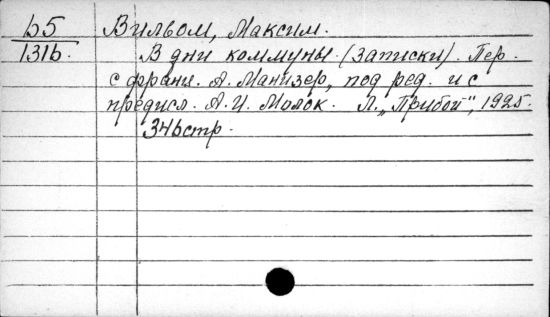 Б5 Вильом, Максим.
131б. В дни коммуны. (Записки). Пер.
с франц. А. Манизер, под ред. и с
предисл. А. И. Молок. Л. „Прибой", 1925.
346стр.